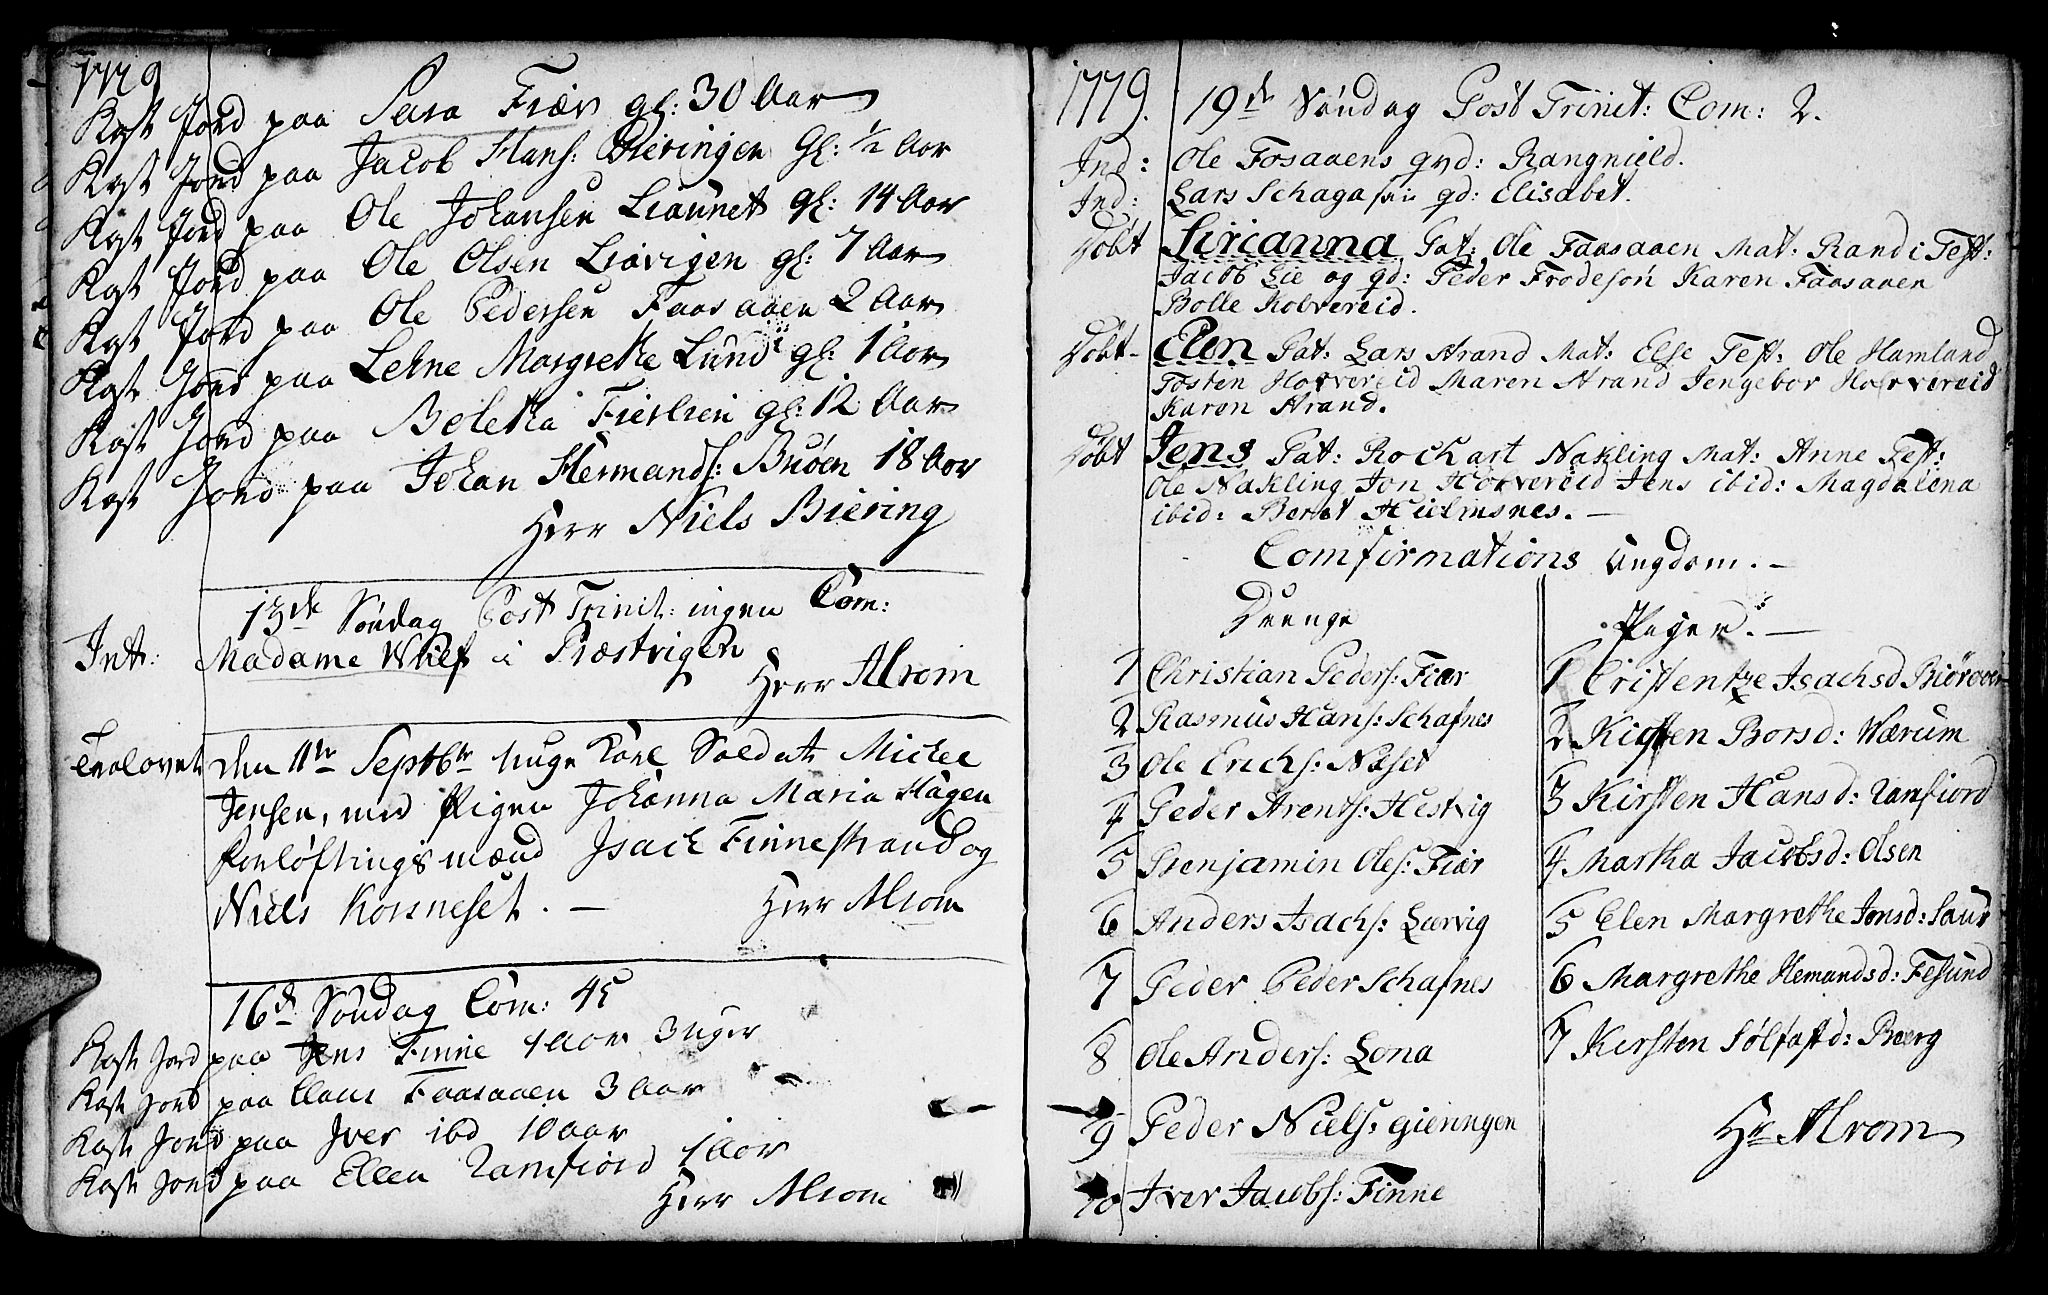 1779
Kast Jord paa Sara Fiær gl: 30 Aar
Kast Jord paa Jacob Hans: Bieringen Gl: 1/2 Aar
Kast Jord paa Ole Johansen Liaunet gl: 14 Aar
Kast Jord paa Ole Olsen Liavigen gl: 7 Aar
Kast Jord paa Ole Pedersen Faasaaen 2 Aar
Kast Jord paa Lehne Margrethe Lund gl: 1 Aar
Kast Jord paa Beletha Fierlien gl: 12 Aar
Kast Jord paa Johan Hermands: Buöen 18 Aar
Herr Niels Biering
13de Søndag Post Trinit: ingen Com:
Int: Madame Wulf i Præstvigen
Herr Alrom
Trolovet den 11te Septbr unge Karl Soldat Michel
Jensen, med Pigen Johanna Maria Hagen
forløftningsmænd Isach Finnestrand og
Niels Korsneset. —
Herr Alrom
16de Søndag Com: 45
Kast Jord paa Jens Finne 4 Aar 3 uger
Kast Jord paa Claus Faasaaen 3 Aar
Kast Jord paa Iver ibd 10 aar
Kast Jord paa Ellen Ramfiord 1 Aar
Herr Alrom
1779. 19de Søndag Post Trinit: Com: 2.
Ind: Ole Fosaaens qvd: Rangnield.
Ind: Lars Schaga qd: Elisabet.
Døbt Sirianna Pat: Ole Faasaaen Mat: Randi Test:
Jacob Lie og qd: Peder Frodeson Karen Faasaaen
Bolle Kolvereid.
Døbt- Elen Pat: Lars Strand Mat: Else Test: Ole Hamland
Tosten Horvereid Maren Strand Jengebor Horvereid
Karen Strand.
Døbt Jens Pat: Rochart Nakling Mat: Anne Test:
Ole Nakling Jon Horvereid Jens ibid: Magdalena
ibid: Beret Hielmsnes. —
Comfirmations Ungdom. —
Drenge
1 Christian Peders: Fiær
2 Rasmus Hans: Schafnes
3 Ole Erichs: Næset
4 Peder Arents: Hestvig
5 Benjamin Oles: Fiær
6 Anders Isachs: Lærvig
7 Peder Peder Schafnes
8 Ole Anders: Lona
9 Peder Niels: gieringen
10 Iver Jacobs: Finne
Piger. —
1 Cristentze Isachsd Biörøen
2 Kirsten Borsd: Værum
3 Kirsten Hansd: Ramfiord
4 Martha Jacobsd: Olsen
5 Elen Margrethe Jonsd: Saur
6 Margrethe Hemandsd: Fesund
7 Kirsten Sölfastd: Berg
Hr Alrom